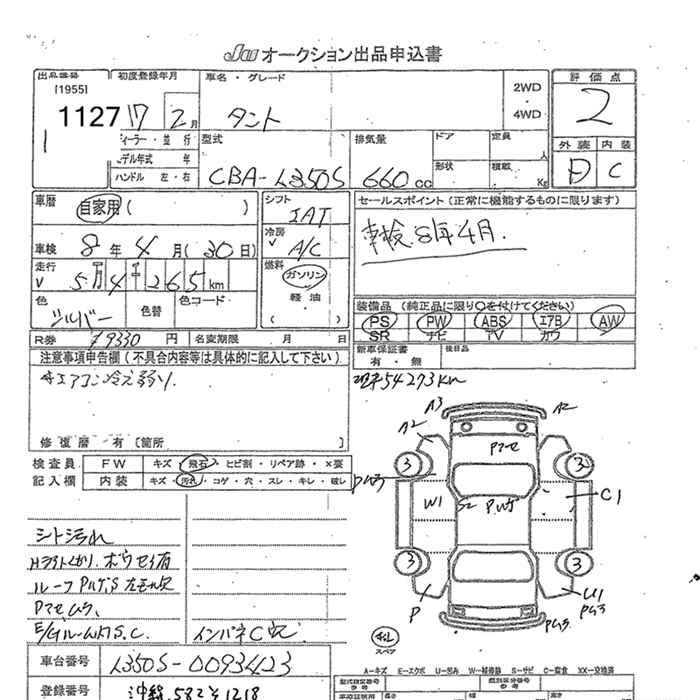 JU オークション出品申込書
出品番号
[1955]
1127
1
初度登録年月
17 2月
車名・グレード
タント
2WD
・
4WD
評価点
2
外装 内装
D C
ィーラー・並行
デル年式 年
ハンドル 左・右
型式
CBA-L350S
排気量
660cc
ドア
定員
人
形状
積載
Kg
車暦
自家用 ( )
シフト
IAT
セールスポイント(正常に機能するものに限ります)
車検8年4月.
車検 8年4月(30日)
冷房
A/C
走行
5万4千265km
燃料
ガソリン
軽油
( )
色
シルバー
色替
色コード
装備品(純正品に限り○を付けてください)
PS PW ABS エアB AW
SR ナビ TV カワ
R券 79330円
名変期限 月 日
新車保証書
有・無
後日品
注意事項申告欄(不具合内容等は具体的に記入して下さい)
エアコン冷え弱い
現車54273km
修復歴 有[箇所 ]
検査員
記入欄
FW キズ・飛石・ヒビ割・リペア跡・×要
内装 キズ・汚れ・コゲ・穴・スレ・キレ・破レ
A3 A2
A2
Pマセ
3 3
W1 C1
P U1
3 3
スペア
シート汚れ
Pマセムラ.
インパネC
車台番号 L350S-0093423
A-キズ E-エクボ U-凹み W-補修跡 S-サビ C-腐食 XX-交換済
登録番号 沖縄 582 1218
型式指定番号
類別区分番号